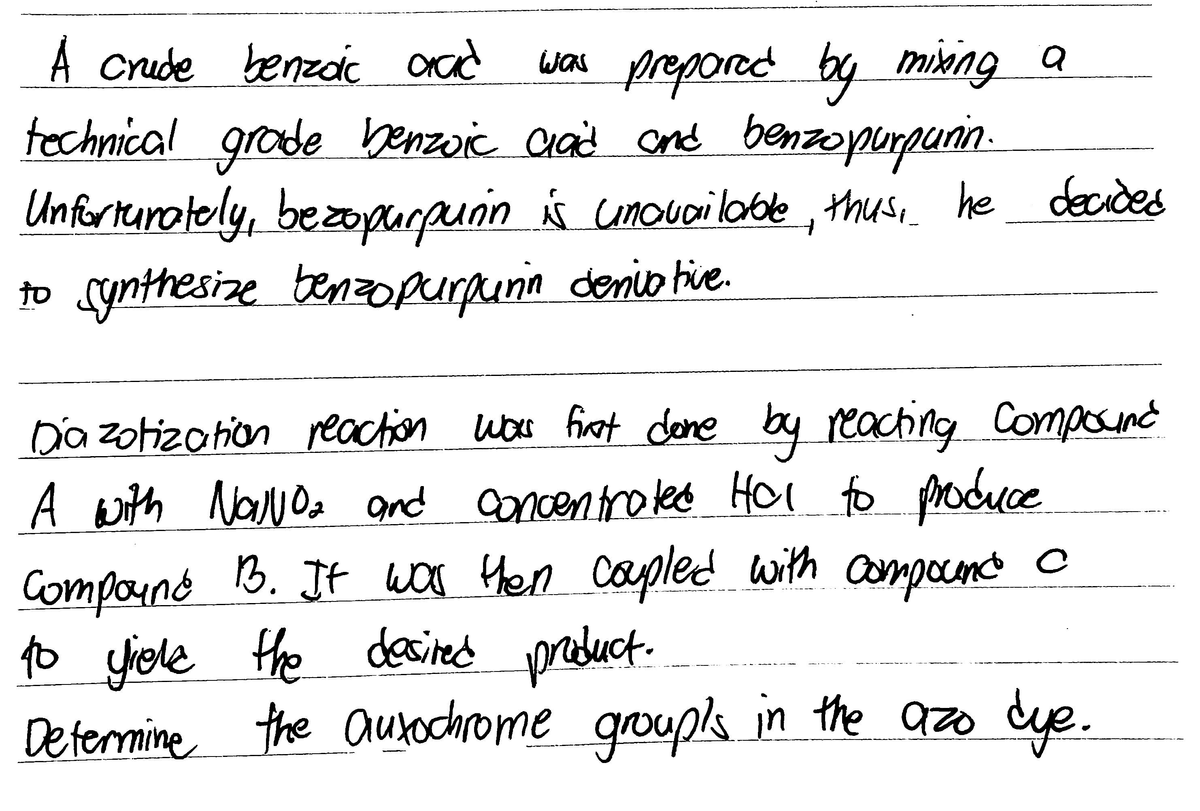 A crude benzoic acid was prepared by mixing a
technical grade benzoic acid and benzopurpurin.
Unfortunately, bezopurpurin is unavailable, thus, he decided
to synthesize benzopurpurin derivative.
Diazotization reaction was first done by reacting Compound
A with NaNO₂ and concentrated HCl to produce
Compound B. It was then coupled with compound C
to yield the desired product.
Determine the auxochrome group/s in the azo dye.